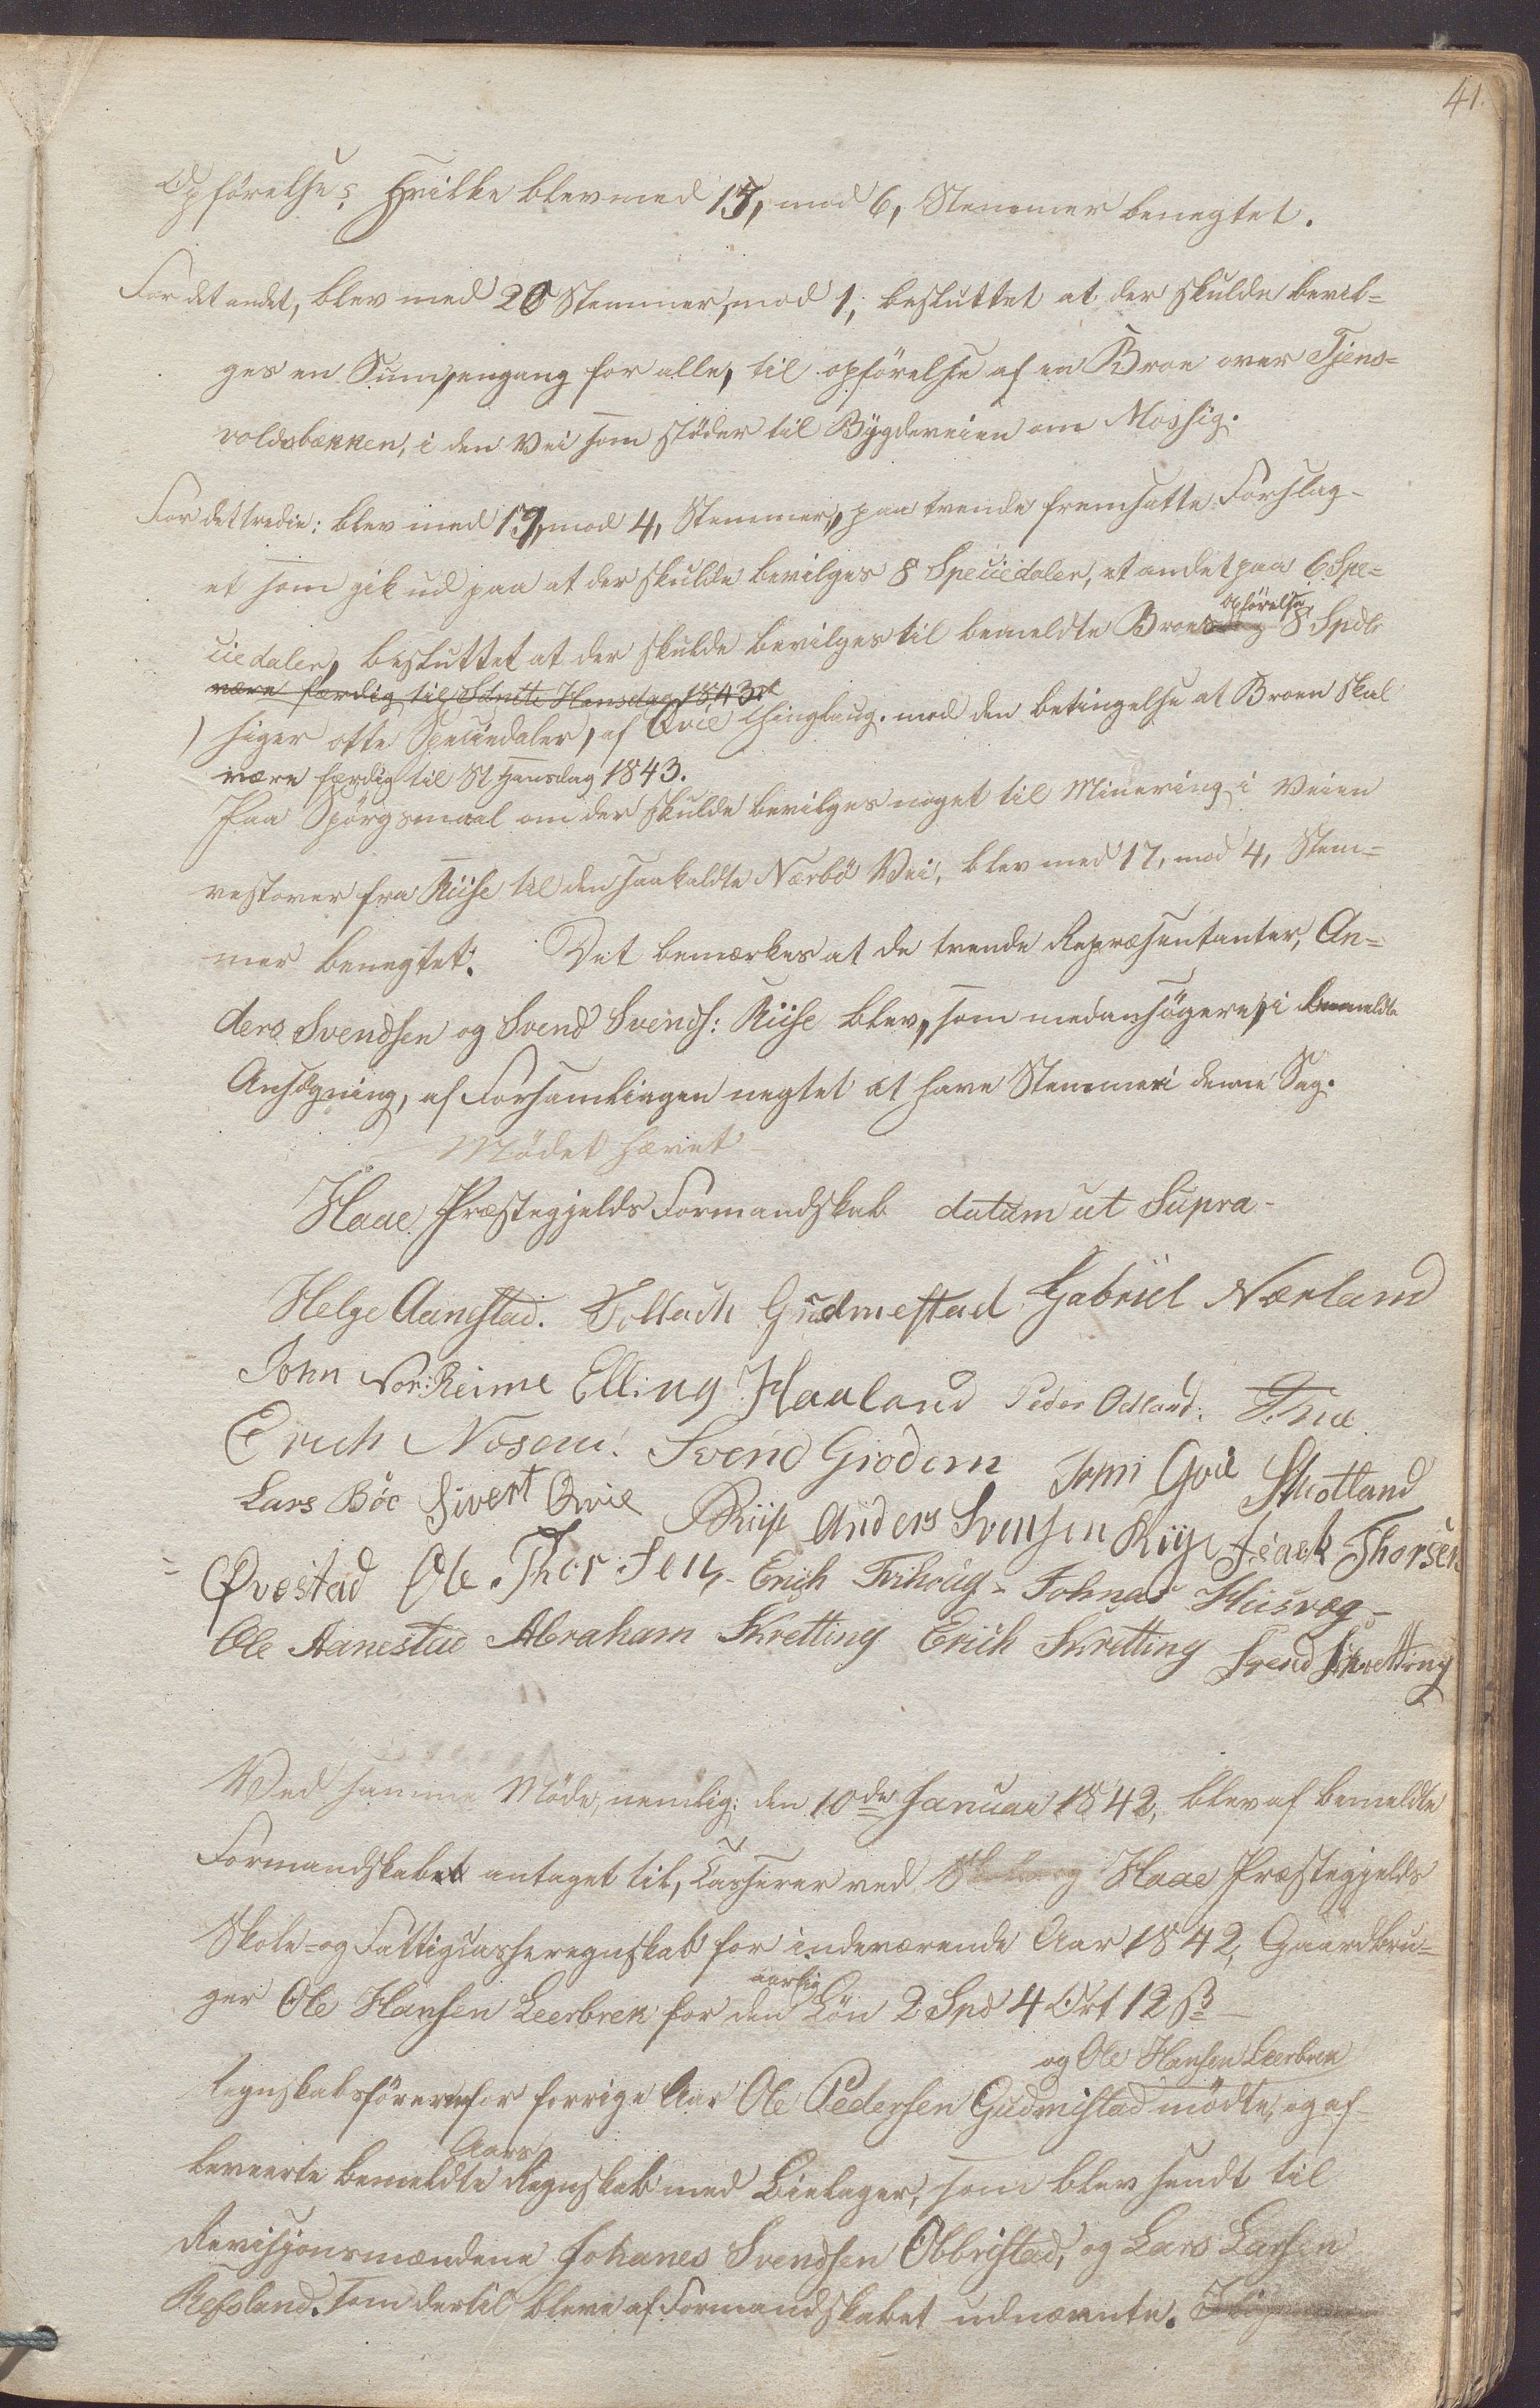 41.
Opförelse; Hvilke blev med 15, mod 6, Stemmer benegtet.
For det andet, blev med 20 Stemmer, mod 1, besluttet at der skulde bevil=
ges en Sum, engang for alle, til opförelse af en Broe over Tjens=
voldsbækken, i den Vei som stöder til Bÿgdeveien om Mossig.
For det tredie: blev med 17, mod 4, Stemmer, paa trende fremsatte Forslag
et som gik ud paa at der skulde bevilges 8 Speciedaler, et andet paa 6 Spe=
ciedaler, besluttet at der skulde bevilges til bemeldte Broes opförelse 8 Spdlr
være færdig til Sancte Hansdag 1843.
) siger otte Speciedaler, af Qvie Thinglaug. med den betingelse at Broen skal
være færdig til St. Hansdag 1843.
Paa Spörgsmaal om der skulde bevilges noget til Minering i Veien
vestover fra Riise til den saakaldte Nærbö Vei, blev med 17, mod 4, Stem=
mer benegtet. Det bemærkes at de trende Repræsentanter, An=
ders Svendsen og Svend Svends: Riise blev, som medansögere, i bemeldte
Ansögning, af Forsamlingen negtet at have Stemmer i denne Sag.
Mödet hævet
Haae Præstegjelds Formandskab datum ut Supra-
Helge Aanestad. Tollach Gudmestad Gabriel Nærland
John Nor: Reime Elling Haaland Peder Odland.
Erich Nosem. Svend Grödem Qvie S Motland
Lars Böe Sivert Qvie Riise Anders Svensen Riise Isaek Thorsen
Qvestad Ole Thorsen, Erich Tvihoug - Johnas Husvæg -
Ole Aanestad Abraham Skretting Erich Skretting Svend Skretting
Ved samme Möde, nemlig: den 10de Januar 1842, blev af bemeldte
Formandskabet antaget til, Casserer ved Haae Præstegjelds
Skole- og Fattigcasseregnskab for indeværende Aar 1842, Gaardbru=
ger Ole Hansen Leerbrek for den aarlig Lön 2 Spd 4 Ort 12 ß
og Ole Hansen Leerbrek
Regnskabsförer for forrige Aar Ole Pedersen Gudmestad mödte, og af-
Aars
leveerte bemeldte Regnskab med Bielager, som blev sendt til
Revisjonsmændene Johanes Svendsen Obbrestad, og Lars Larsen
Refsland. som dertil bleve af Formandskabet udnævnte.